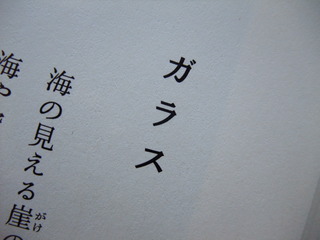 ガラス
海の見える崖の
海や